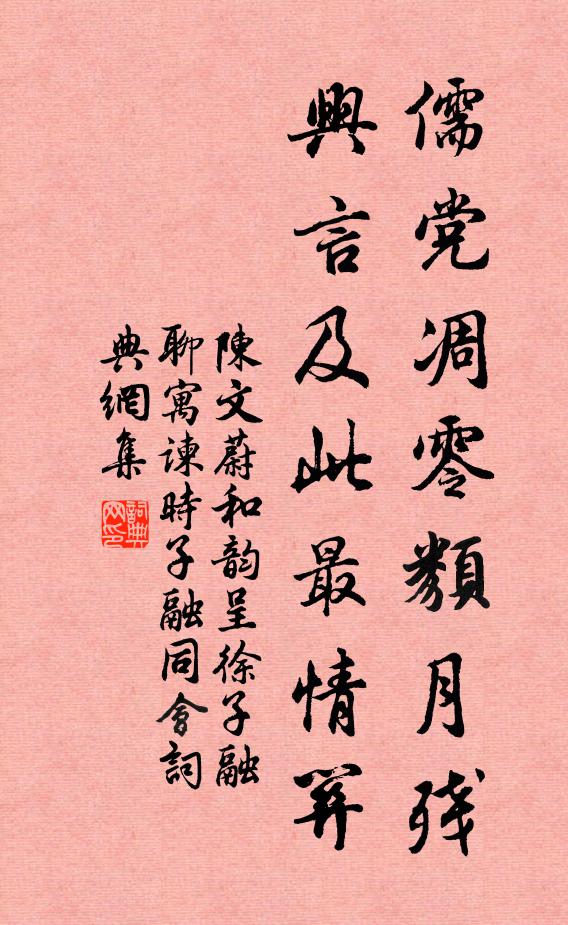 儒党凋零類月残
興言及此最情关
陳文蔚和韵呈徐子融
聊寓諫時子融同會詞
典網集
詞典网印